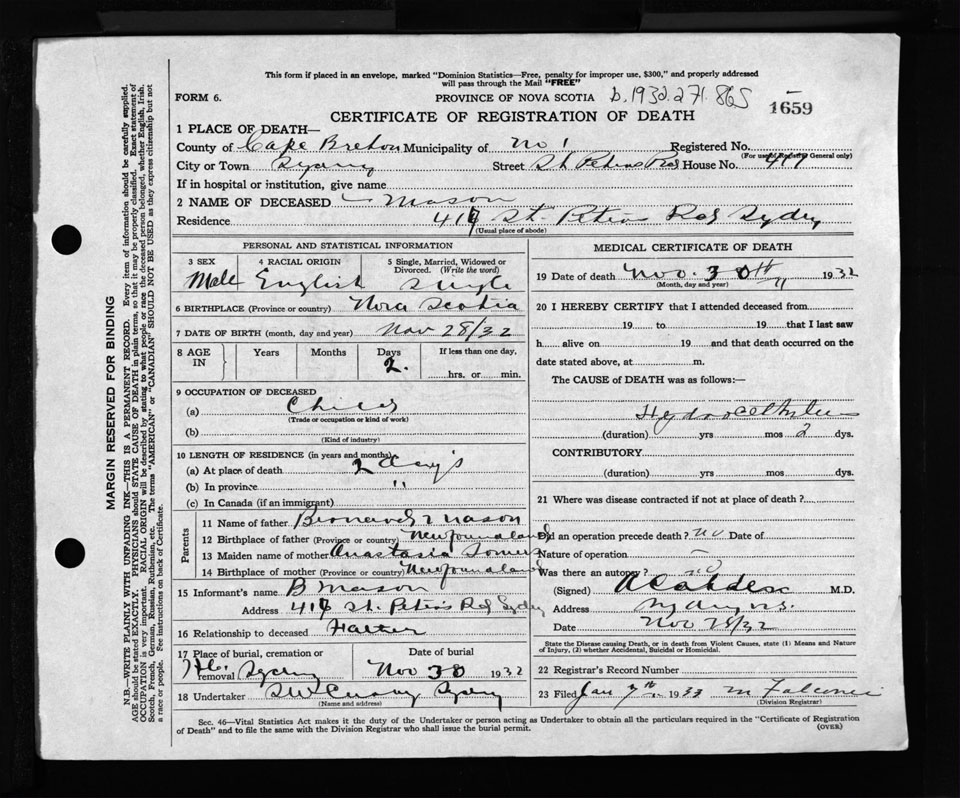 This form if placed in an envelope, marked "Dominion Statistics—Free, penalty for improper use, $300," and properly addressed
will pass through the Mail "FREE"
FORM 6.
PROVINCE OF NOVA SCOTIA b.1932.271.865
1659
CERTIFICATE OF REGISTRATION OF DEATH
1 PLACE OF DEATH—
County of Cape Breton Municipality of No 1 Registered No.
(For use of Registrar General only)
City or Town Sydney Street St Peters Rd House No. 417
If in hospital or institution, give name
2 NAME OF DECEASED Mason
Residence 417 St. Peters Rd Sydney
(Usual place of abode)
PERSONAL AND STATISTICAL INFORMATION
3 SEX 4 RACIAL ORIGIN 5 Single, Married, Widowed or
Divorced. (Write the word)
Male English Single
6 BIRTHPLACE (Province or country) Nova Scotia
7 DATE OF BIRTH (month, day and year) Nov 28/32
8 AGE IN Years Months Days If less than one day,
2. hrs. or min.
9 OCCUPATION OF DECEASED
(a) Child
(Trade or occupation or kind of work)
(b)
(Kind of industry)
10 LENGTH OF RESIDENCE (in years and months)
(a) At place of death 2 Day's
(b) In province "
(c) In Canada (if an immigrant)
Parents
11 Name of father Bernard Mason
12 Birthplace of father (Province or country) Newfoundland
13 Maiden name of mother Anastasia Somers
14 Birthplace of mother (Province or country) Newfoundland
15 Informant's name B Mason
Address 417 St. Peter's Rd Sydney
16 Relationship to deceased Father
17 Place of burial, cremation or removal Date of burial
Sydney Nov 30 1932
18 Undertaker Sydney
(Name and address)
MEDICAL CERTIFICATE OF DEATH
19 Date of death Nov. 30th 1932
(Month, day and year)
20 I HEREBY CERTIFY that I attended deceased from
19 to 19 that I last saw
h alive on 19 and that death occurred on the
date stated above, at m.
The CAUSE of DEATH was as follows:—
(duration) yrs mos 2 dys.
CONTRIBUTORY
(duration) yrs mos dys.
21 Where was disease contracted if not at place of death?
Did an operation precede death? no Date of
Nature of operation —
Was there an autopsy? no
(Signed) M.D.
Address
Date Nov 28/32
State the Disease causing Death, or in death from Violent Causes, state (1) Means and Nature
of Injury, (2) whether Accidental, Suicidal or Homicidal.
22 Registrar's Record Number
23 Filed Jan 7th 1933 M Falconer
(Division Registrar)
Sec. 46—Vital Statistics Act makes it the duty of the Undertaker or person acting as Undertaker to obtain all the particulars required in the "Certificate of Registration
of Death" and to file the same with the Division Registrar who shall issue the burial permit.
(OVER)
MARGIN RESERVED FOR BINDING
N.B.—WRITE PLAINLY WITH UNFADING INK—THIS IS A PERMANENT RECORD. Every item of information should be carefully supplied.
AGE should be stated EXACTLY. PHYSICIANS should STATE CAUSE OF DEATH in plain terms, so that it may be properly classified. Exact statement of
OCCUPATION is very important. RACIAL ORIGIN will be described by stating to what people or race the deceased person belonged, whether English, Irish,
Scotch, French, German, Russian, Ruthenian, etc. The terms "AMERICAN" or "CANADIAN" SHOULD NOT BE USED as they express citizenship but not
a race or people. See instructions on back of Certificate.